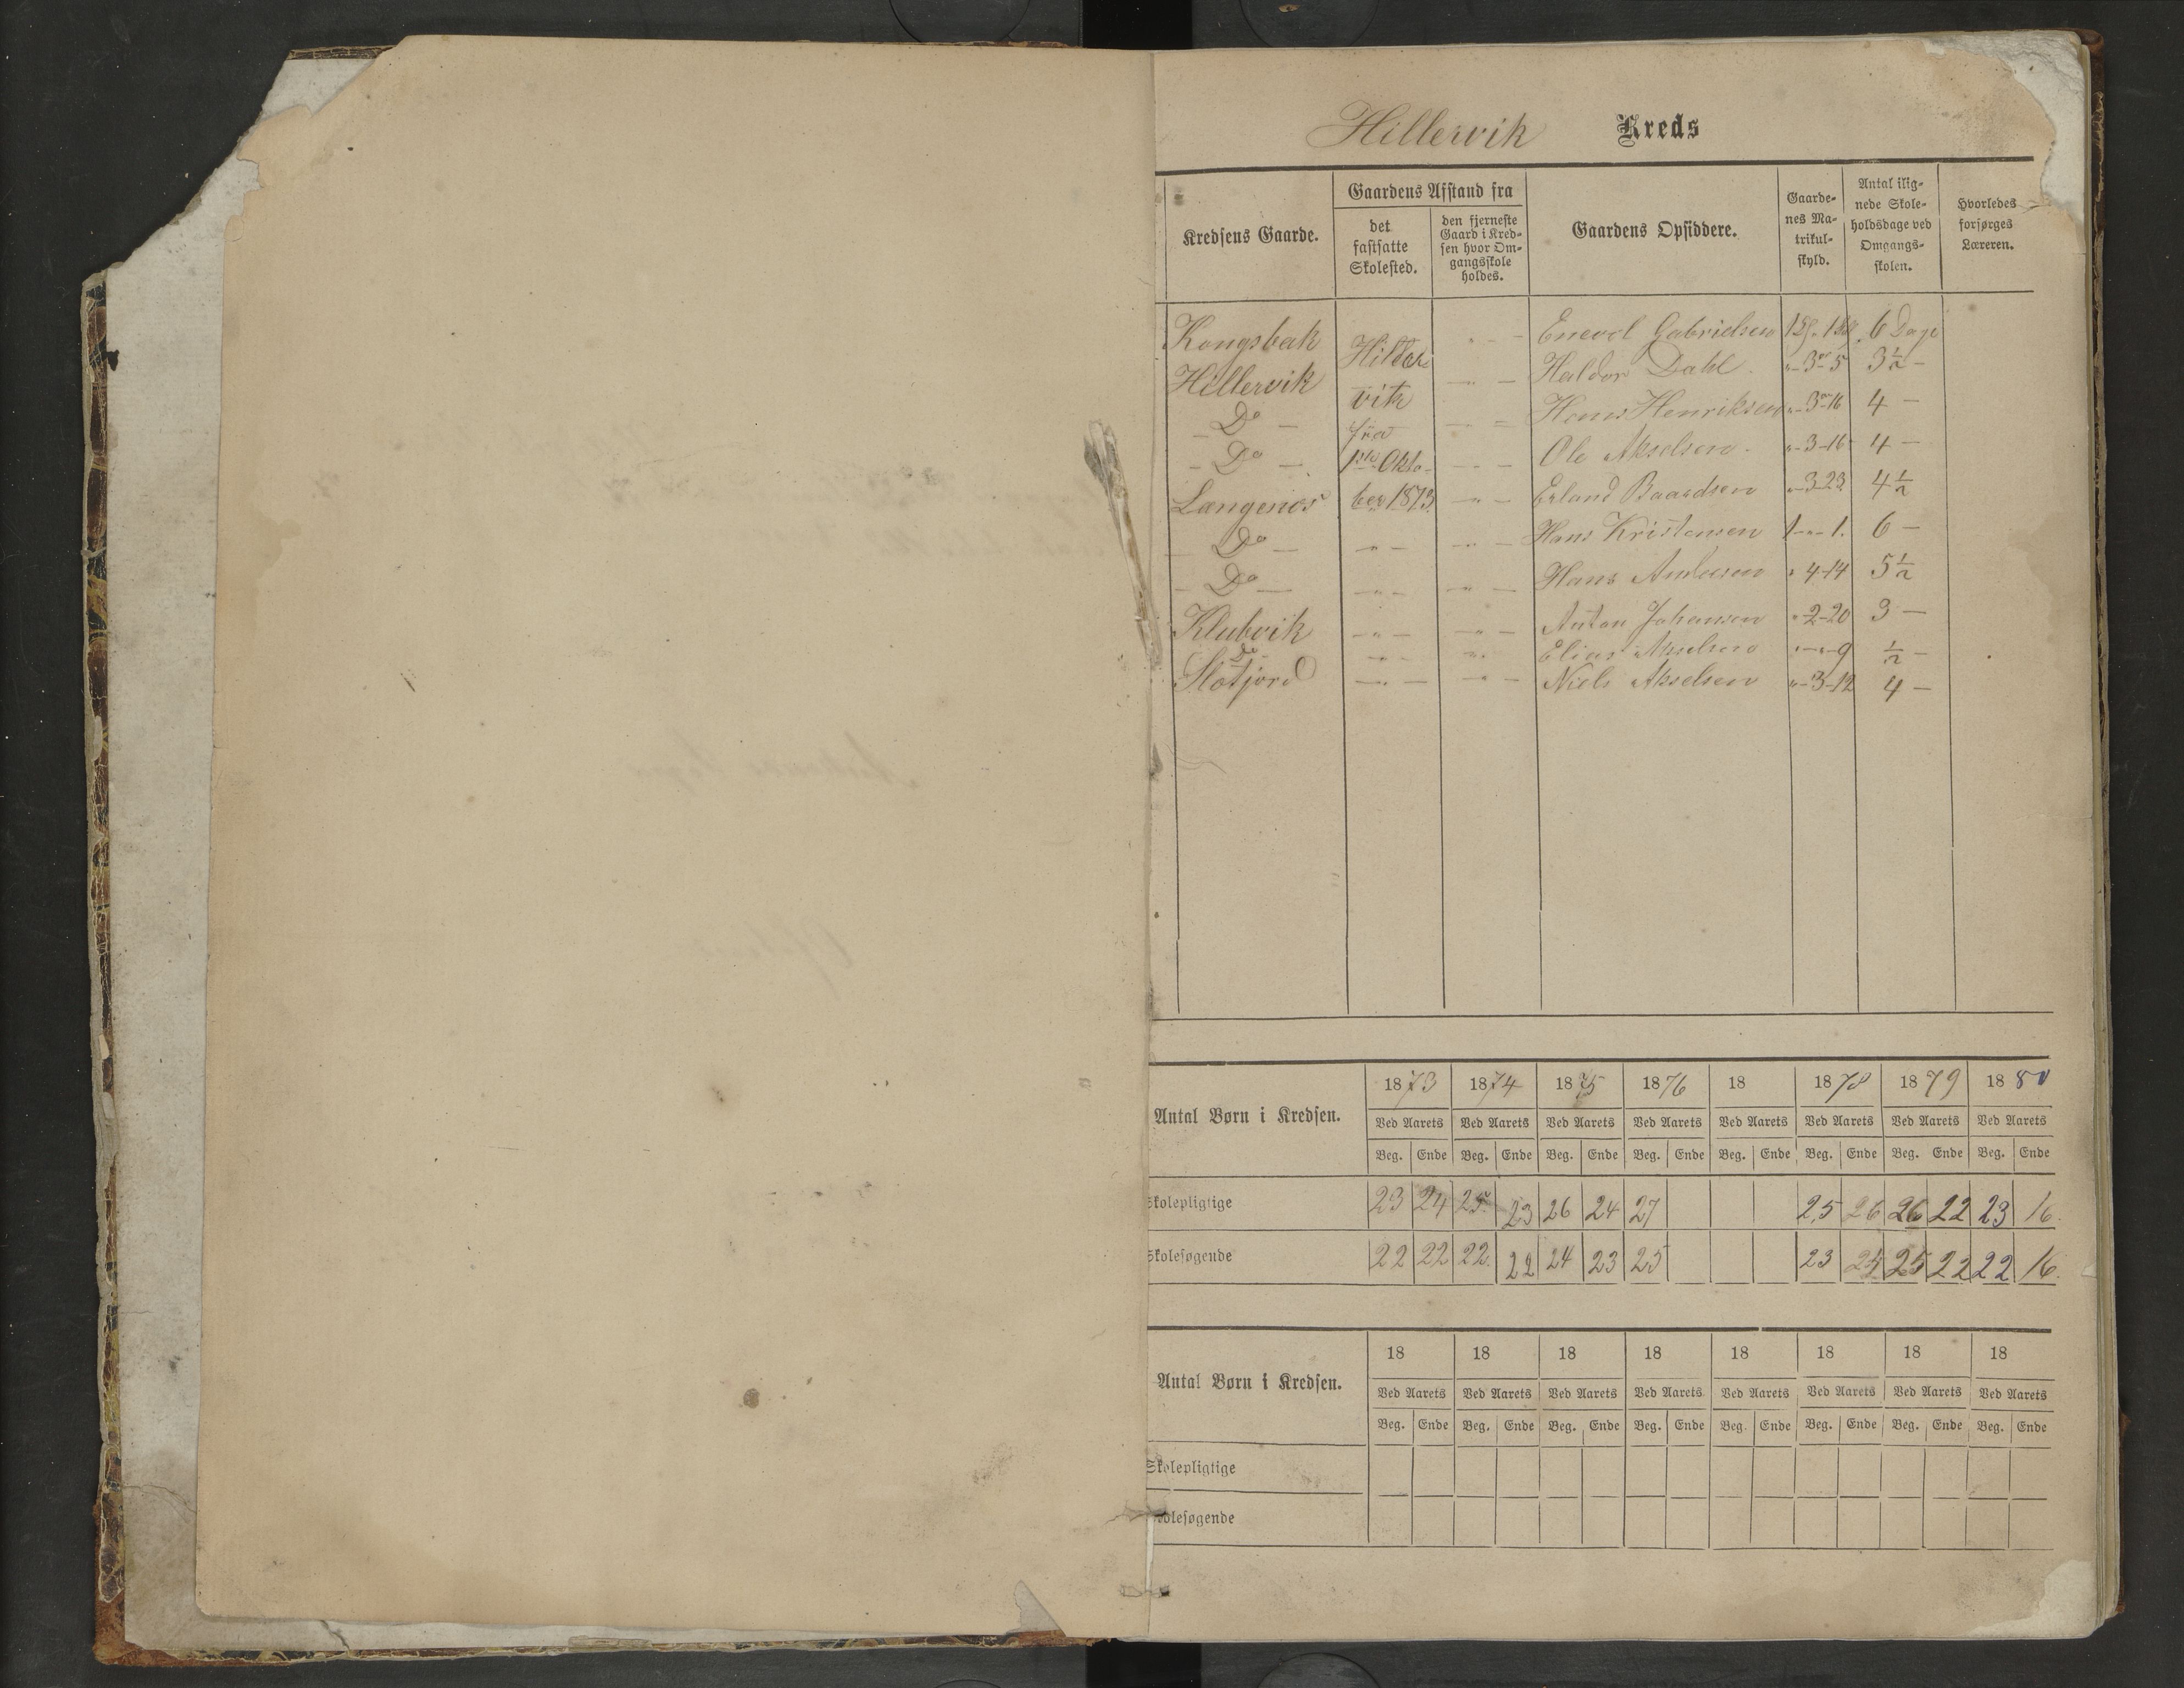 Hillervik Kreds
Kredsens Gaarde. | Gaardens Afstand fra det fastsatte Skolested. | den fjerneste Gaard i Kredsen hvor Omgangsskole holdes. | Gaardens Opsiddere. | Gaardenes Matrikulskyld. | Antal ilignede Skoleholdsdage ved Omgangsskolen. | Hvorledes forsørges Læreren.
Kongsbak | Hiller | " | Enevol Gabrielsen | 6 Dage
Hillervik | vik | " | Haldor Dahl | "-3-5 | 3½ -
Do | fra | " | Hans Henriksen | "-3-16 | 4 -
Do | 1ste Okto- | " | Ole Akselsen | "-3-16 | 4 -
Langenes | ber 1873. | " | Erland Baardsen | "-3-23 | 4½
Do | " | " | Hans Kristensen | 1-"-1. | 6 -
Do | " | " | Hans Andersen | "-4-14 | 5½
Klubvik | " | " | Anton Johansen | "-2-20 | 3 -
do | " | " | Elias Akselsen | "-"-9 | ½ -
Slotjord | " | " | Niels Akselsen | "-3-12 | 4 -
Antal Børn i Kredsen. | 1873 | 1874 | 1875 | 1876 | 18 | 1878 | 1879 | 1880
Ved Aarets | Ved Aarets | Ved Aarets | Ved Aarets | Ved Aarets | Ved Aarets | Ved Aarets | Ved Aarets
Beg. | Ende | Beg. | Ende | Beg. | Ende | Beg. | Ende | Beg. | Ende | Beg. | Ende | Beg. | Ende | Beg. | Ende
Skolepligtige | 23 | 24 | 25 | 23 | 26 | 24 | 27 | | | | 25 | 26 | 26 | 22 | 23 | 16.
Skolesøgende | 22 | 22 | 22. | 22 | 24 | 23 | 25 | | | | 23 | 24 | 25 | 22 | 22 | 16.
Antal Børn i Kredsen. | 18 | 18 | 18 | 18 | 18 | 18 | 18 | 18
Ved Aarets | Ved Aarets | Ved Aarets | Ved Aarets | Ved Aarets | Ved Aarets | Ved Aarets | Ved Aarets
Beg. | Ende | Beg. | Ende | Beg. | Ende | Beg. | Ende | Beg. | Ende | Beg. | Ende | Beg. | Ende | Beg. | Ende
Skolepligtige
olesøgende